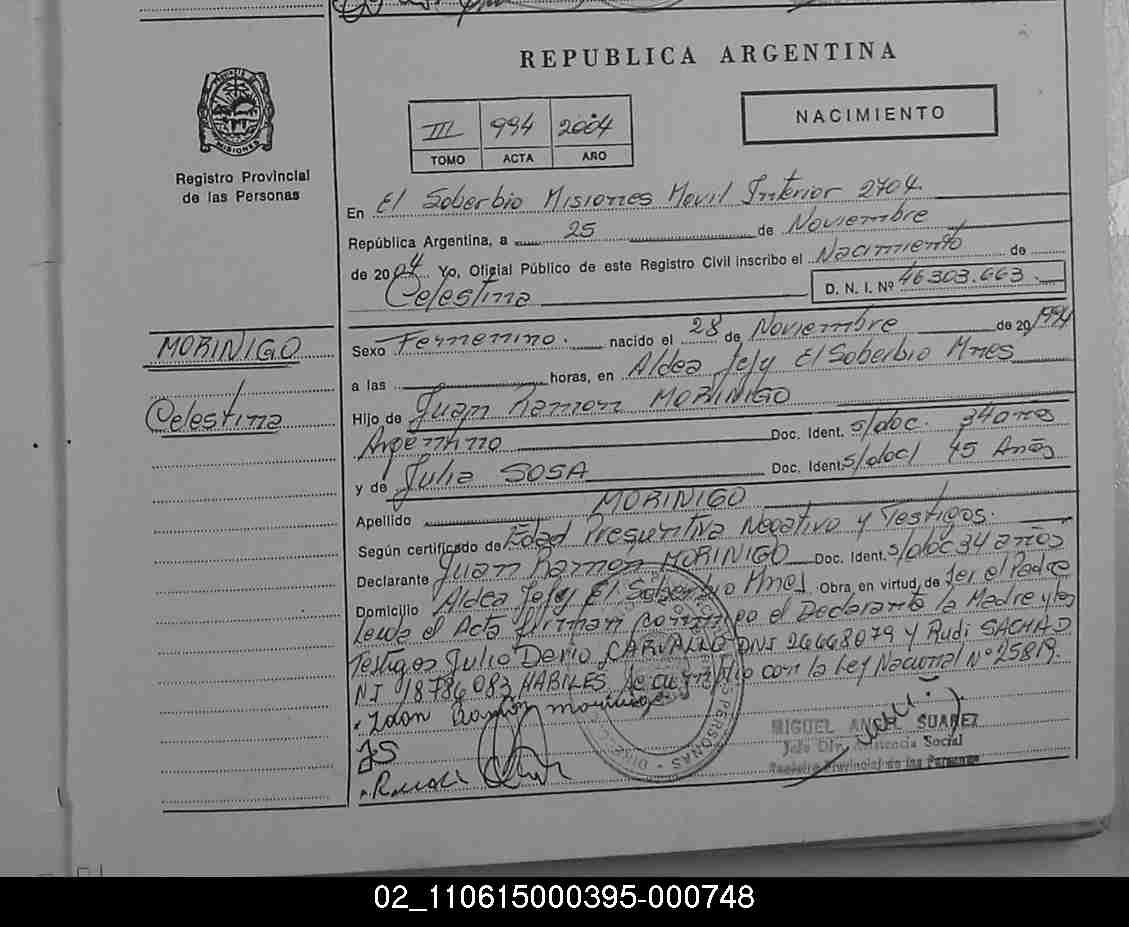 REPUBLICA ARGENTINA
PROVINCIA DE MISIONES
Registro Provincial
de las Personas
III 994 2004
TOMO ACTA AÑO
NACIMIENTO
En El Soberbio Misiones Movil Interior 2704.
República Argentina, a 25 de Noviembre
de 2004 Yo, Oficial Público de este Registro Civil inscribo el Nacimiento de
Celestina D. N. I. Nº 46.303.663.
MORINIGO
Celestina
Sexo Femenino. nacido el 28 de Noviembre de 20/1994
a las horas, en Aldea Jejy El Soberbio Mnes
Hijo de Juan Ramon MORINIGO
Argentino Doc. Ident. s/doc. 34 años
y de Julia SOSA Doc. Ident. s/doc/ 45 Años
Apellido MORINIGO
Según certificado de Edad Presuntiva Negativo y Testigos.
Declarante Juan Ramon MORINIGO Doc. Ident. s/doc 34 años
Domicilio Aldea Jejy El Soberbio Mnes. Obra en virtud de Ser el Padre
leida el Acta firman conmigo el Declarante la Madre y los
Testigos Julio Dario CARVALLO DNI 26668079 y Rudi SACHAD
NI 18784083 HABILES de cumplio con la Ley Nacional Nº 25819.
Ramón morinigo
JS
MIGUEL ANGEL SUAREZ
Jefe Div. Asistencia Social
Registro Provincial de las Personas
PERSONAS
02_110615000395-000748